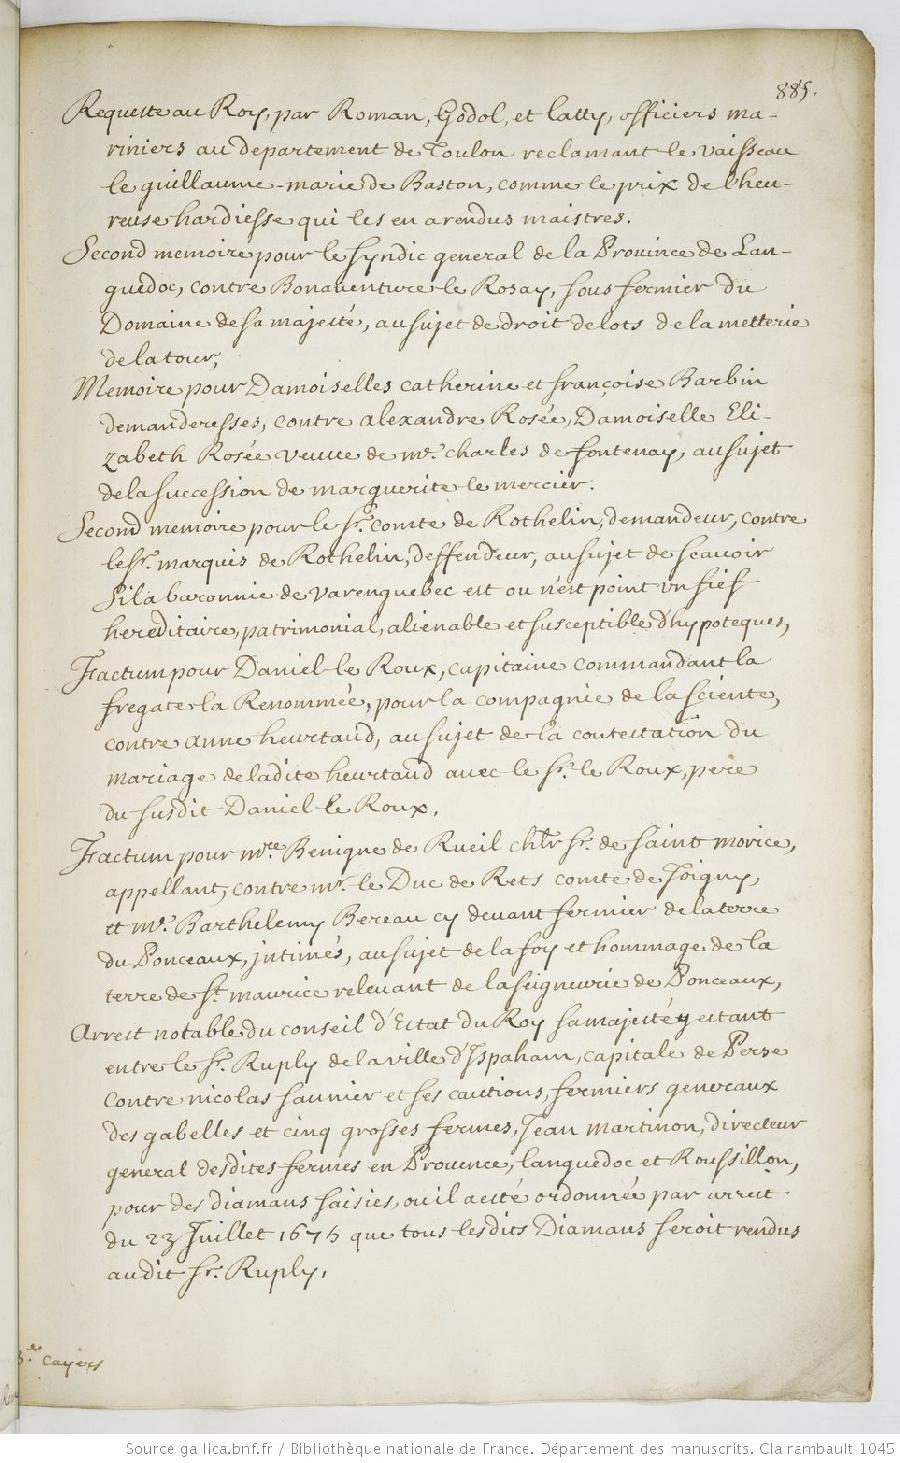 885.
Requeste au Roy, par Roman, Godol, et Latty, officiers ma-
riniers au departement de Toulon reclamant le vaisseau
le guillaume-marie de Baston, comme le prix de l'heu-
reuse hardiesse qui les en a rendus maistres.
Second memoire pour le syndic general de la Prouince de Lan-
guedoc, contre Bonaventure le Rosay, sous fermier du
Domaine de sa majesté, au sujet de droit de lots de la metterie
de la tour,
Memoire pour Damoiselles catherine et françoise Barbin
demanderesses, contre alexandre Rosée, Damoiselle Eli-
zabeth Rosée veuue de mr. charles de fontenay, au sujet
de la succession de marguerite le mercier.
Second memoire pour le sr. comte de Rothelin, demandeur, contre
le sr. marquis de Rothelin, deffendeur, au sujet de scauoir
si la baronnie de varenguebec est ou n'est point vn fief
hereditaire, patrimonial, alienable et susceptible d'hypoteques,
Factum pour Daniel le Roux, capitaine commandant la
fregate la Renommée, pour la compagnie de la sciente,
contre anne heurtaud, au sujet de la contestation du
mariage de ladite heurtaud avec le sr. le Roux, pere
du susdit Daniel le Roux.
Factum pour mre. Benigne de Rueil chlr sr. de saint morice,
appellant, contre mr. le Duc de Rets comte de Joigny,
et mr. Barthelemy Bereau cy deuant fermier de la terre
du Ponceaux, intimés, au sujet de la foy et hommage de la
terre de st. maurice releuant de la seigneurie de Ponceaux,
Arrest notable du conseil d'Estat du Roy sa majesté y estant
entre le sr. Ruply de la ville d'Ispaham, capitale de Perse
contre nicolas saunier et ses cautions, fermiers generaux
des gabelles et cinq grosses fermes, Jean martinon, directeur
general desdites fermes en Prouence, languedoc et Roussillon,
pour des diamans saisies, ou il a esté ordonnée par arrest
du 23 Juillet 1675 que tous lesdits Diamans seroit rendus
audit sr. Ruply,
3.e cayers
Source gallica.bnf.fr / Bibliothèque nationale de France. Département des manuscrits. Clairambault 1045